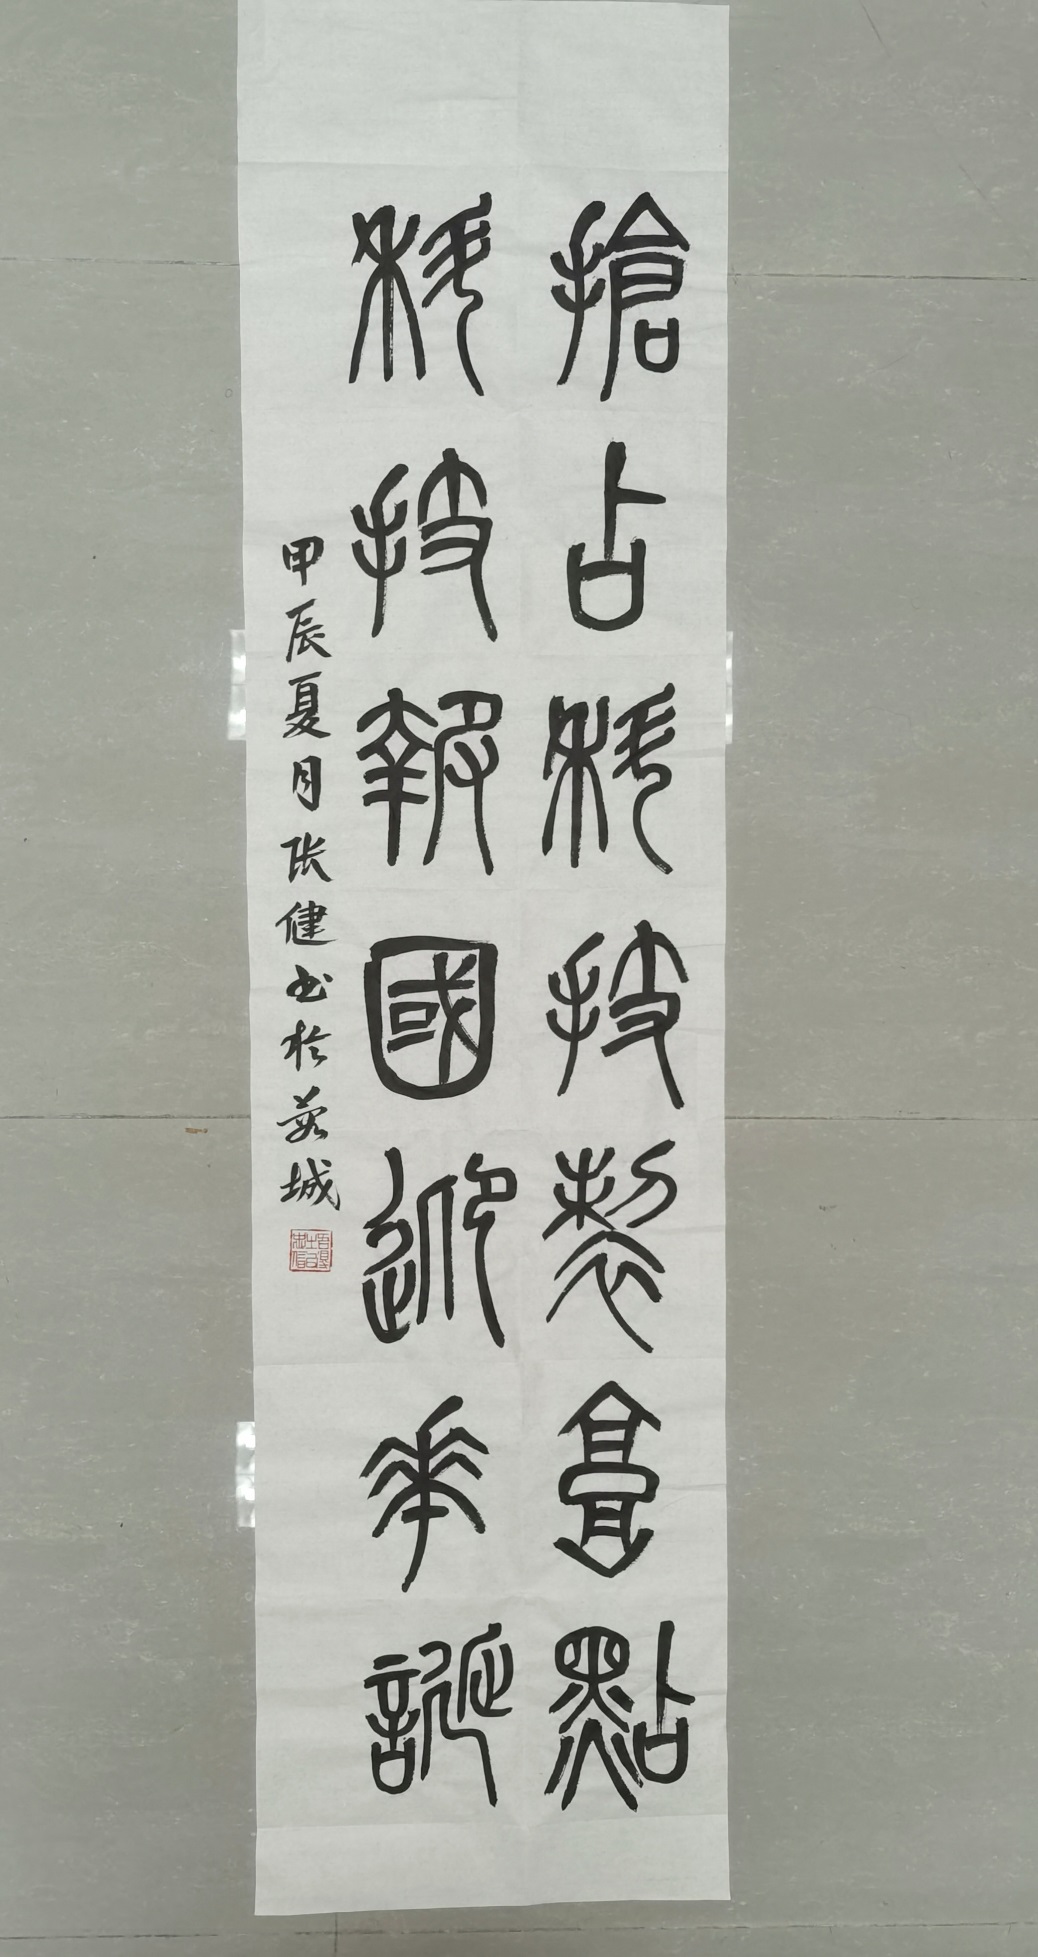 搶占科技製高點
科技報國迎華誕
甲辰夏月張健書於蕪城